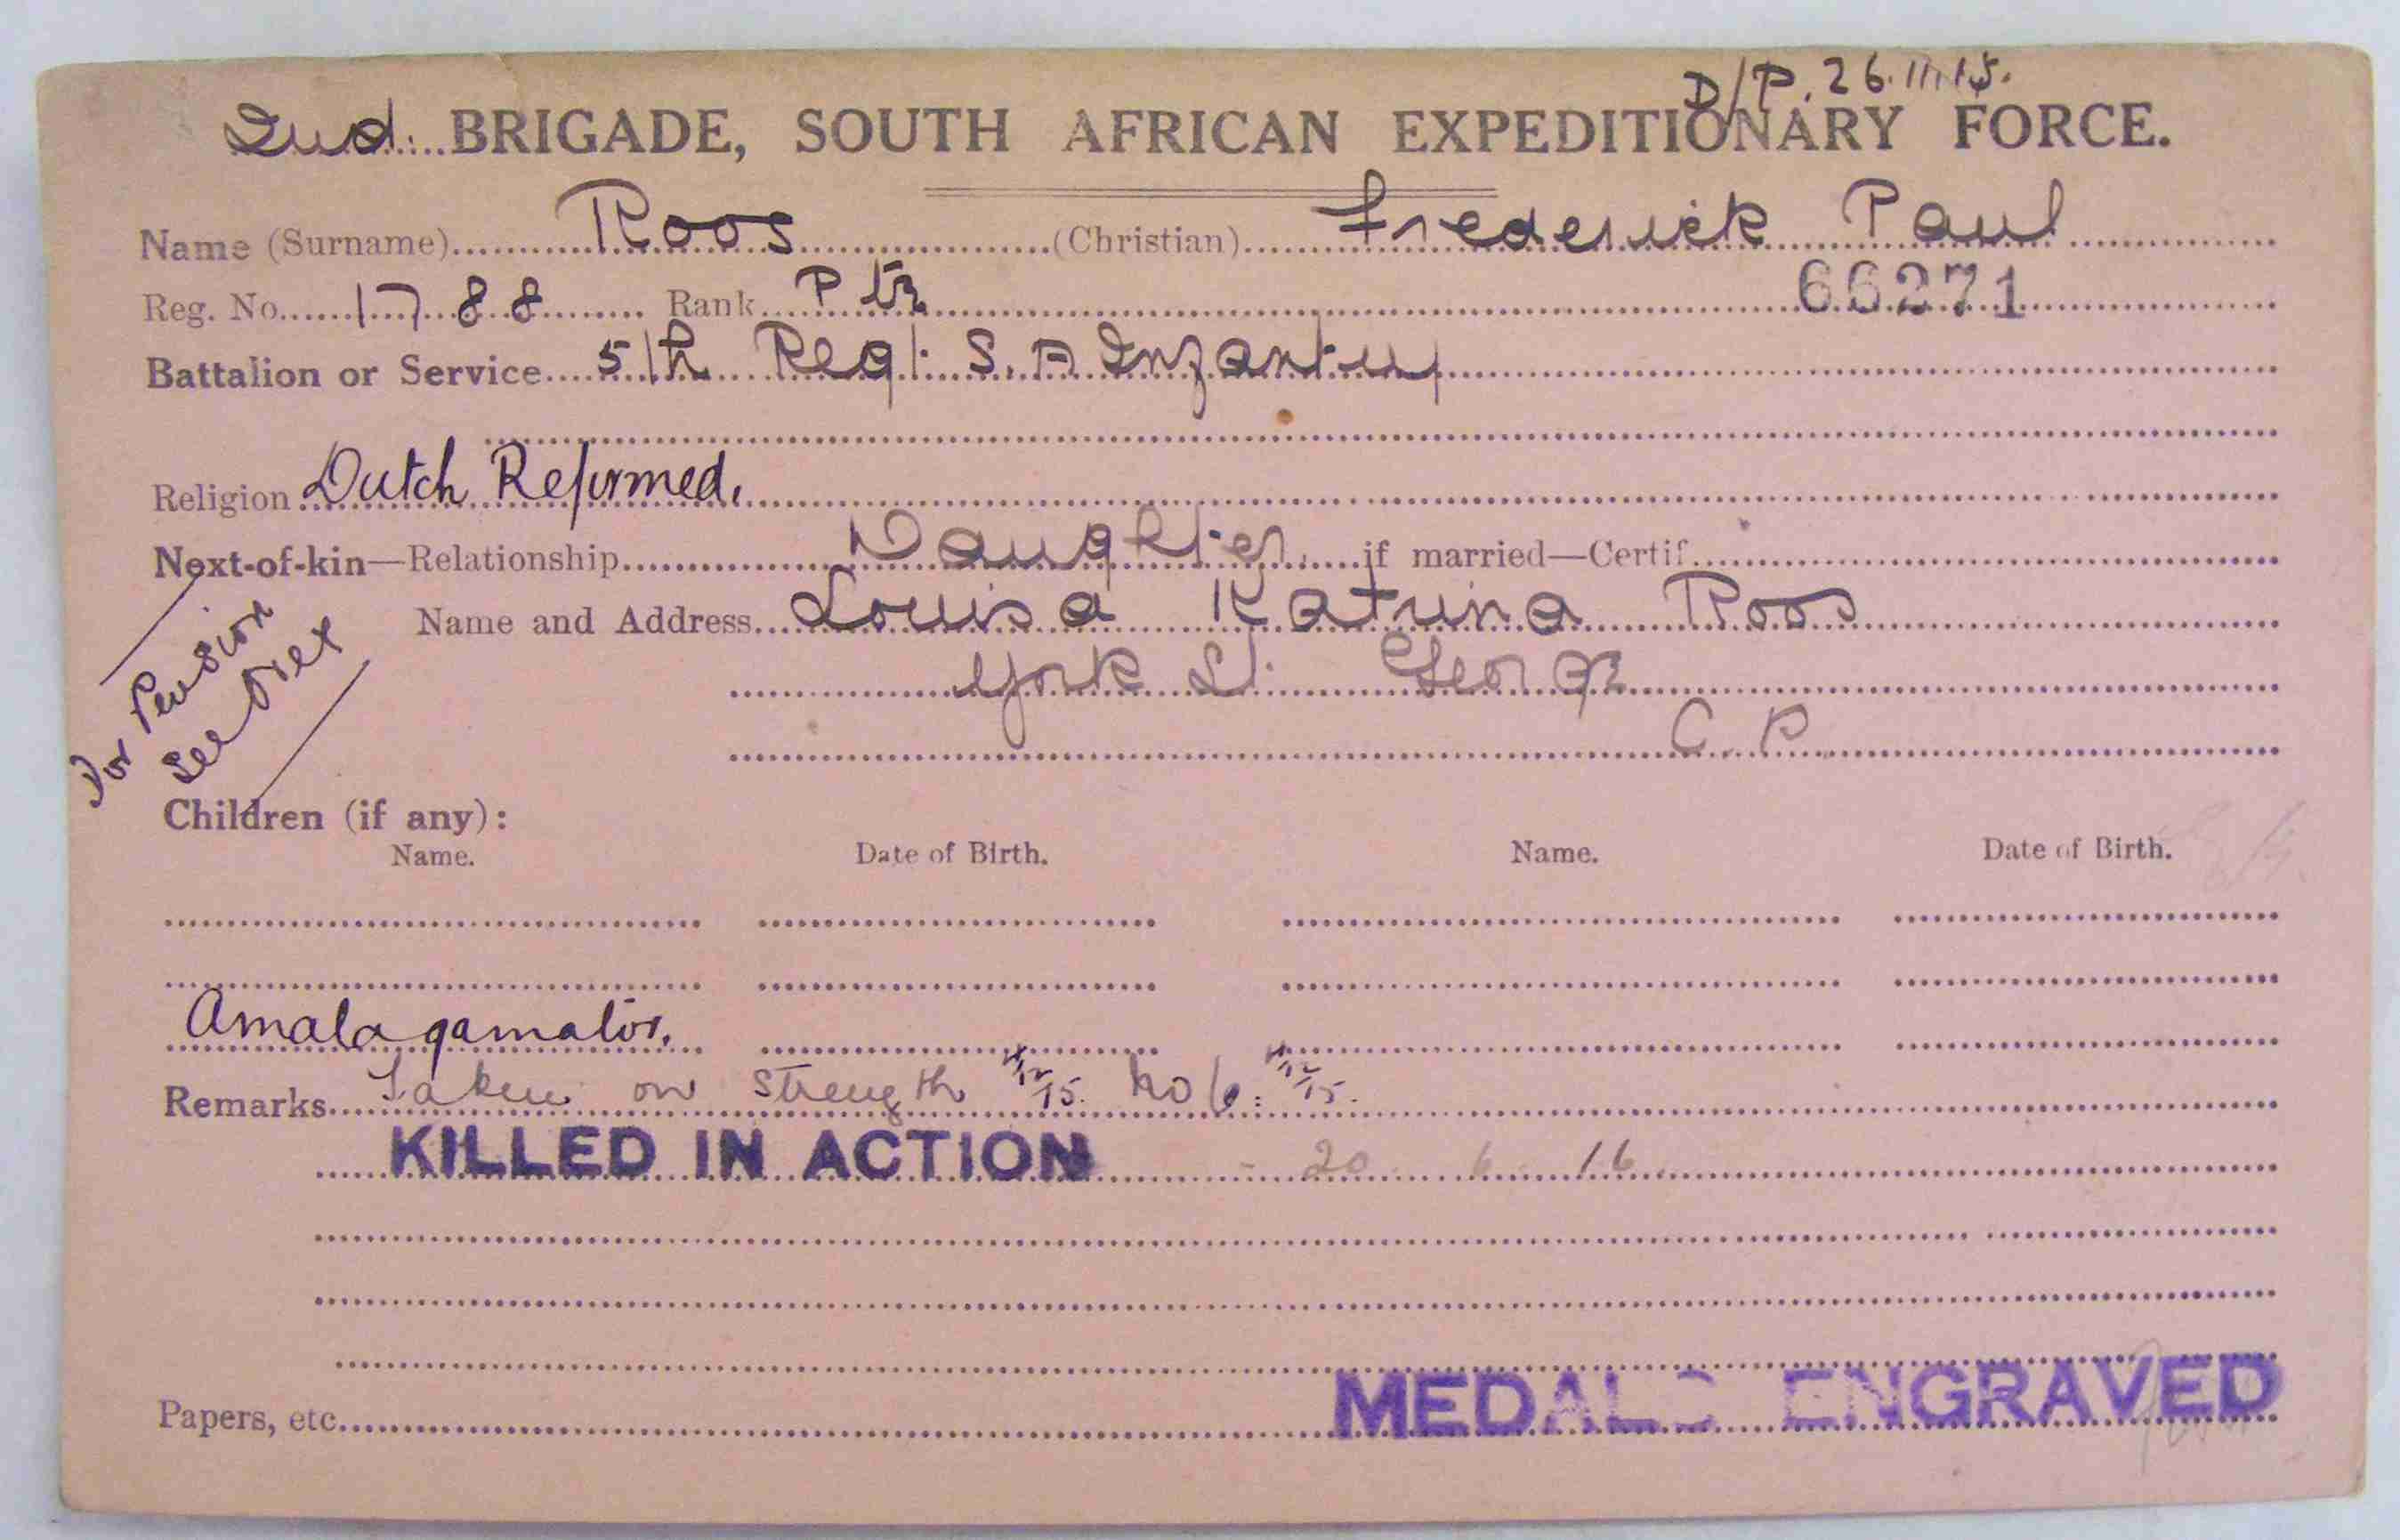 D/P. 26.11.15.
2nd. BRIGADE, SOUTH AFRICAN EXPEDITIONARY FORCE.
Name (Surname) Roos (Christian) Frederick Paul
Reg. No. 1788 Rank Pte 66271
Battalion or Service 5th Regt. S.A Infantry
Religion Dutch Reformed.
Next-of-kin—Relationship Daughter. if married—Certif.
Name and Address Louisa Katrina Roos
York St. George
C.P.
For Pension
See
Children (if any):
Name. Date of Birth. Name. Date of Birth.
Amalagamator.
Remarks Taken on Strength /12/15. No 6: /12/15.
KILLED IN ACTION - 20 6 16
MEDALS ENGRAVED
Papers, etc.